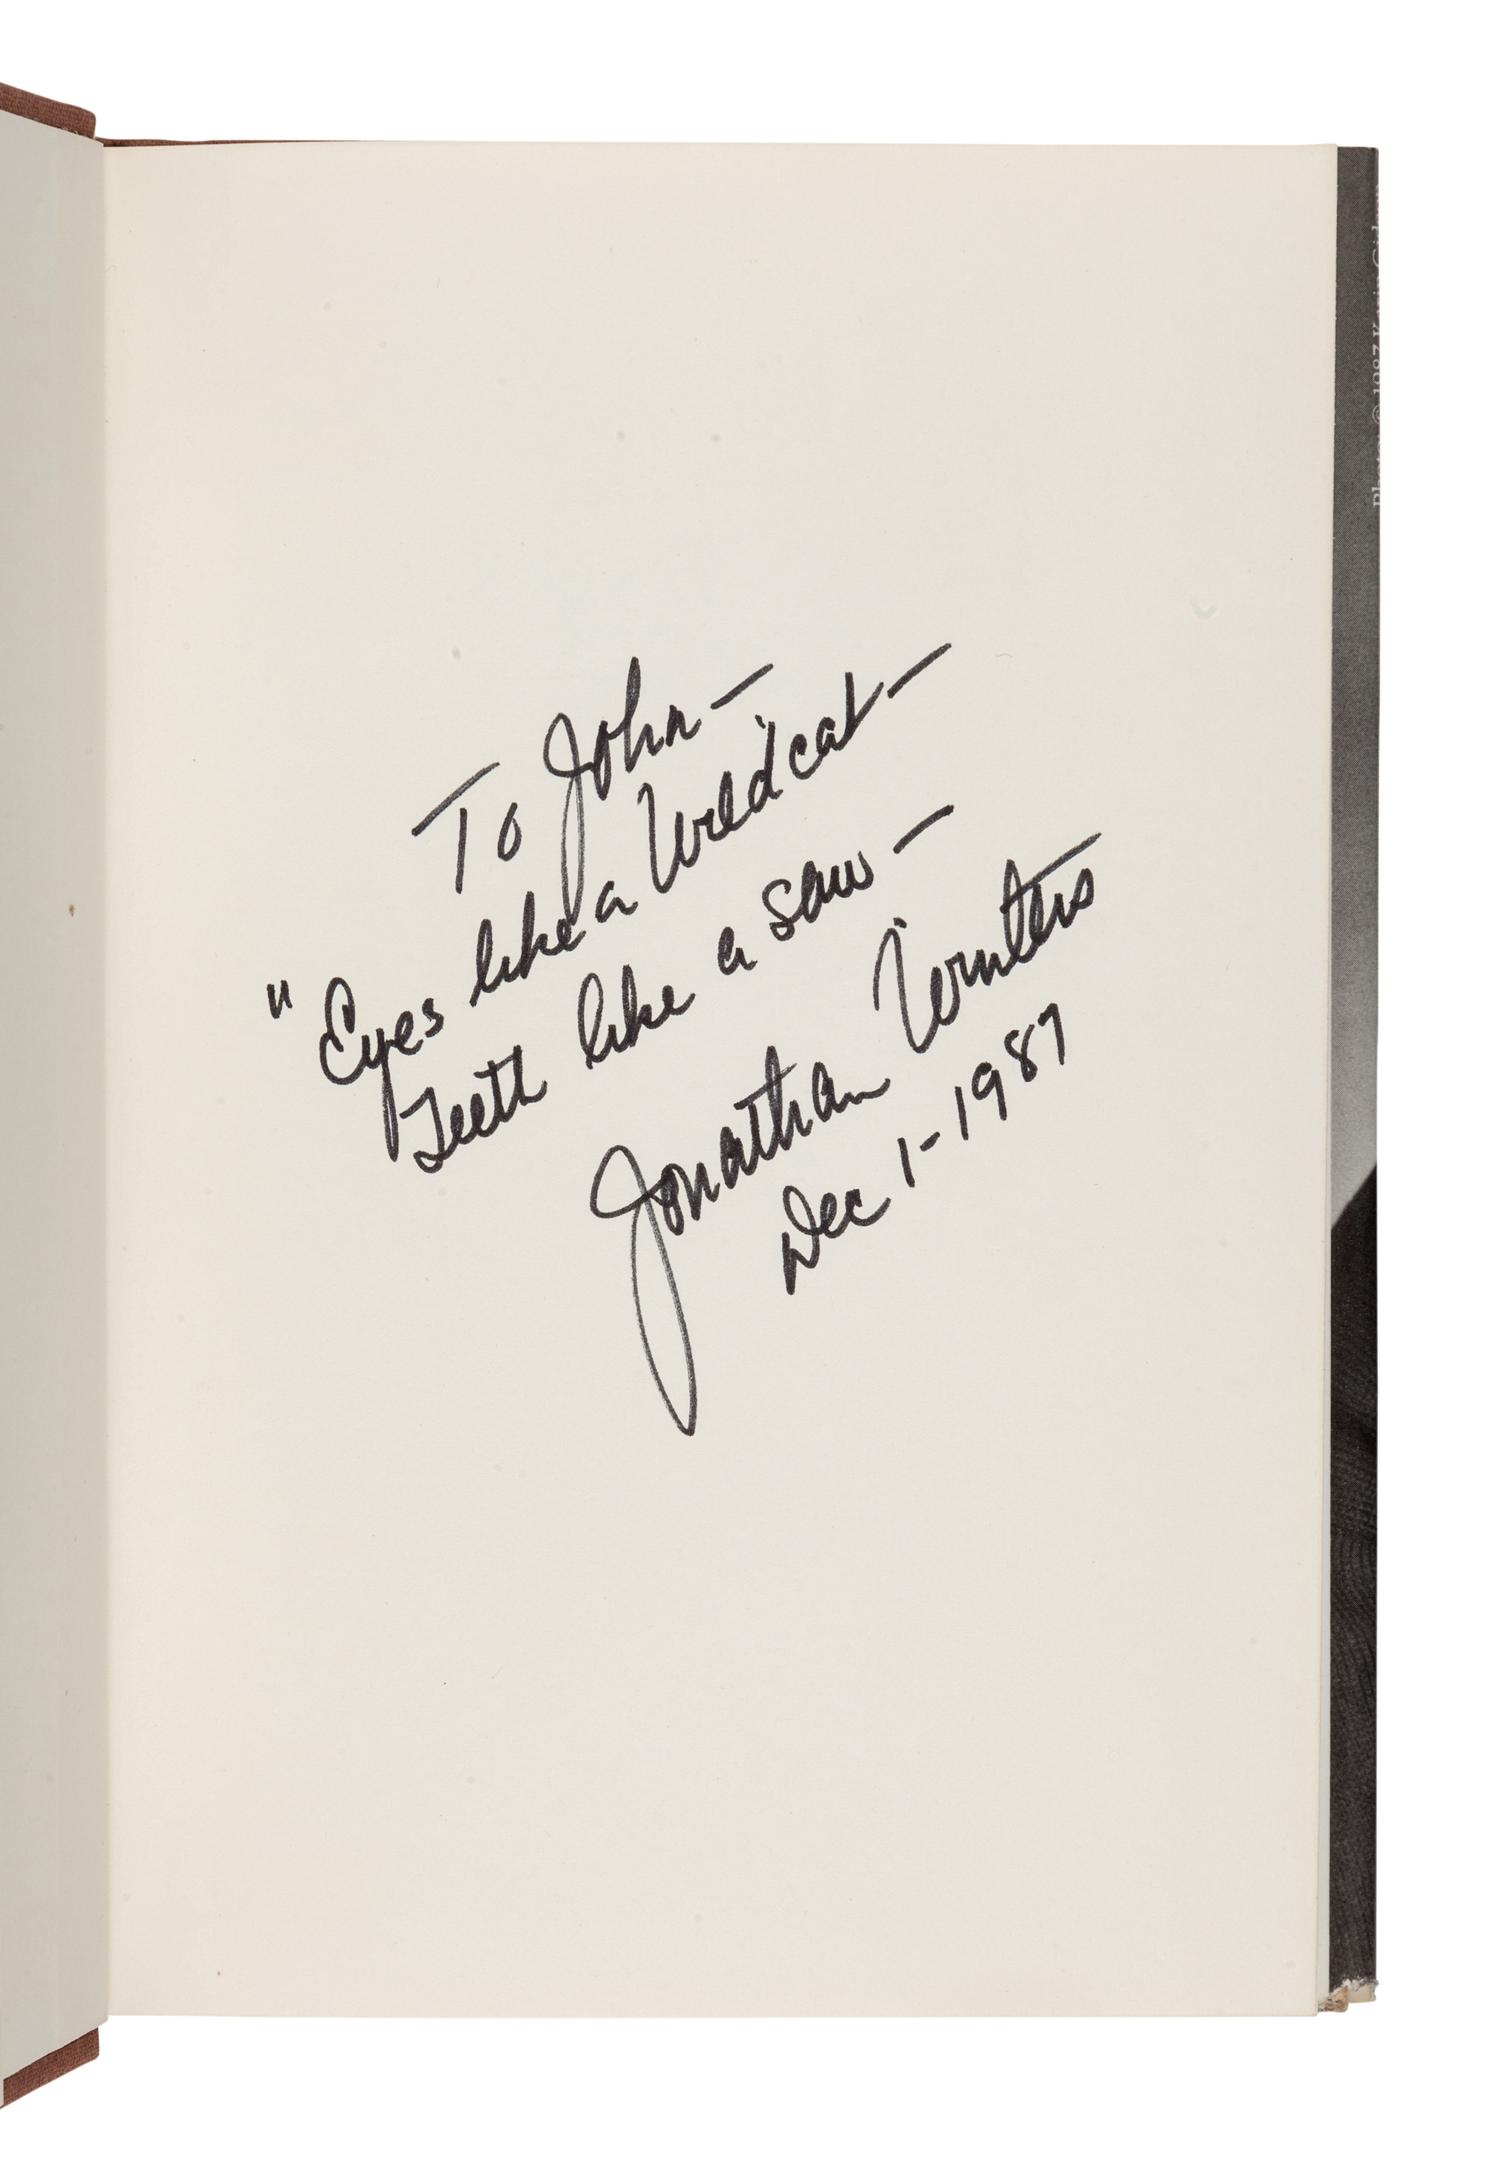 To John—
"Eyes like a Wildcat—
Teeth like a saw—
Jonathan Winters
Dec 1-1987
Photo: © 1987 Karin